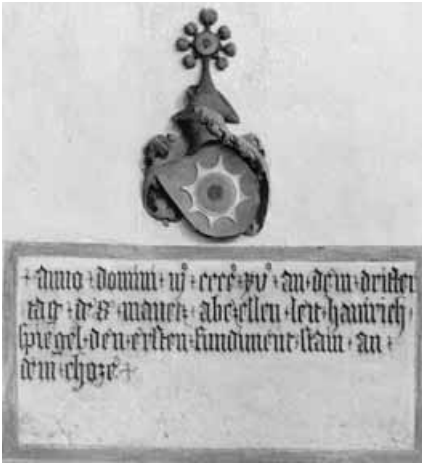 + anno · domini · mº · ccccº · xvº · an · dem · dritten
tag · des · manetz · abrellen · leit · hainrich ·
spiegel · den · ersten · fundiment · stain · an ·
dem · chore +